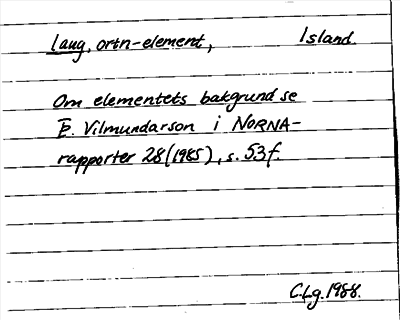 laug, ortn-element, Island.
Om elementets bakgrund se
Þ. Vilmundarson i NORNA-
rapporter 28 (1985), s. 53 f.
C.Lg. 1988.